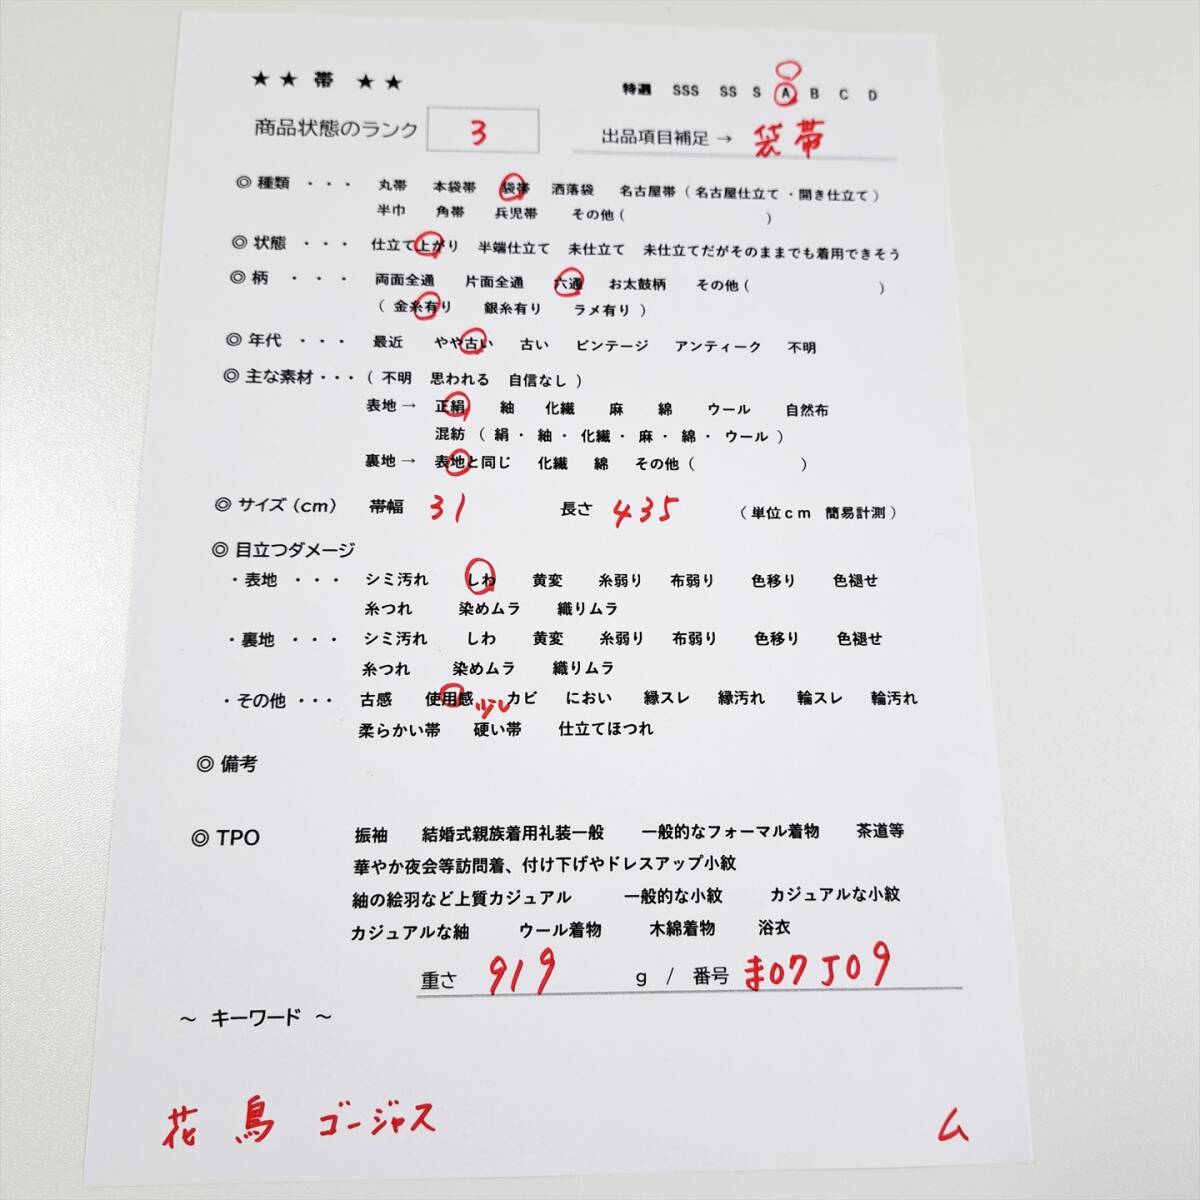 ★ ★ 帯 ★ ★
特選 SSS SS S A B C D
商品状態のランク 3
出品項目補足 → 袋帯
◎ 種類 ・・・ 丸帯 本袋帯 袋帯 洒落袋 名古屋帯 ( 名古屋仕立て ・開き仕立て )
半巾 角帯 兵児帯 その他 ( )
◎ 状態 ・・・ 仕立て上がり 半端仕立て 未仕立て 未仕立てだがそのままでも着用できそう
◎ 柄 ・・・ 両面全通 片面全通 六通 お太鼓柄 その他 ( )
( 金糸有り 銀糸有り ラメ有り )
◎ 年代 ・・・ 最近 やや古い 古い ビンテージ アンティーク 不明
◎ 主な素材・・・ ( 不明 思われる 自信なし )
表地 → 正絹 紬 化繊 麻 綿 ウール 自然布
混紡 ( 絹・ 紬・ 化繊・ 麻・ 綿・ ウール )
裏地 → 表地と同じ 化繊 綿 その他 ( )
◎ サイズ (cm) 帯幅 31 長さ 435 ( 単位cm 簡易計測 )
◎ 目立つダメージ
・表地 ・・・ シミ汚れ しわ 黄変 糸弱り 布弱り 色移り 色褪せ
糸つれ 染めムラ 織りムラ
・裏地 ・・・ シミ汚れ しわ 黄変 糸弱り 布弱り 色移り 色褪せ
糸つれ 染めムラ 織りムラ
・その他 ・・・ 古感 使用感 少し カビ におい 縁スレ 縁汚れ 輪スレ 輪汚れ
柔らかい帯 硬い帯 仕立てほつれ
◎ 備考
◎ TPO 振袖 結婚式親族着用礼装一般 一般的なフォーマル着物 茶道等
華やか夜会等訪問着、付け下げやドレスアップ小紋
紬の絵羽など上質カジュアル 一般的な小紋 カジュアルな小紋
カジュアルな紬 ウール着物 木綿着物 浴衣
重さ 919 g / 番号 ま07J09
～ キーワード ～
花 鳥 ゴージャス ム